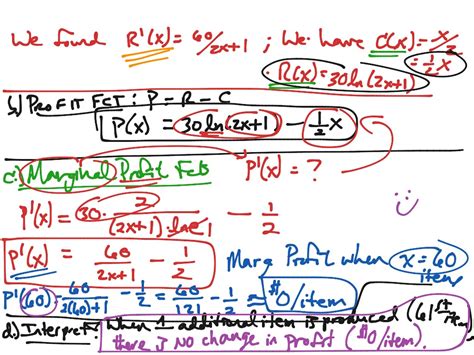 We found R'(x) = 60/2x+1 ; We have C(x) = x/2
= 1/2 x
· R(x) = 30 ln(2x+1)
b) PROFIT FCT : P = R - C
P(x) = 30 ln(2x+1) - 1/2 x
c) Marginal Profit Fcts P'(x) = ?
P'(x) = 30 · 2/(2x+1)·ln e - 1/2
P'(x) = 60/2x+1 - 1/2 Marg Profit when x = 60
items
P'(60) = 60/2(60)+1 - 1/2 = 60/121 - 1/2 ≈ $0/item
d) Interpret: When 1 additional item is produced (61st item)
there is NO change in profit ($0/item).